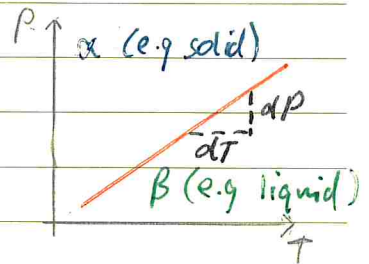 P
α (e.g solid)
dP
dT
β (e.g liquid)
T